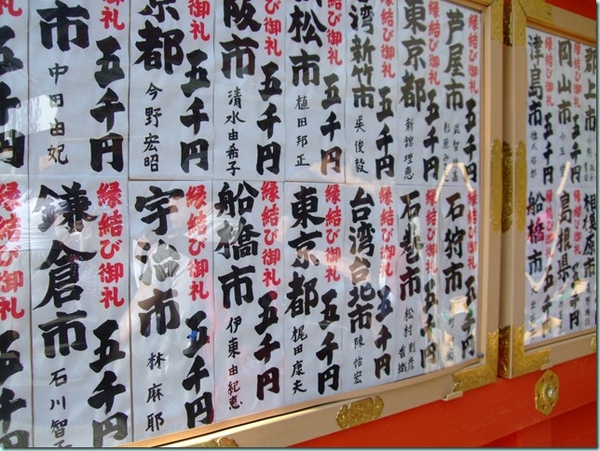 郡上市
縁結び御礼 五千円
岡山市
縁結び御礼 五千円
津島市
相模原市
島根県
船橋市
縁結び御礼 五千円
芦屋市
縁結び御礼 五千円
東京都
新館理恵
縁結び御礼 五千円
台湾新竹市
呉俊毅
縁結び御礼 五千円
松市
植田邦正
縁結び御礼 五千円
阪市
清水由希子
縁結び御礼 五千円
京都
今野宏昭
縁結び御礼 五千円
市
中田由妃
石狩市
縁結び御礼 五千円
石巻市
松村則彦
縁結び御礼 五千円
台湾台北市
陳怡宏
縁結び御礼 五千円
東京都
梶田康夫
縁結び御礼 五千円
船橋市
伊東由紀恵
縁結び御礼 五千円
宇治市
林麻耶
縁結び御礼 五千円
鎌倉市
石川智
縁結び御礼 五千円